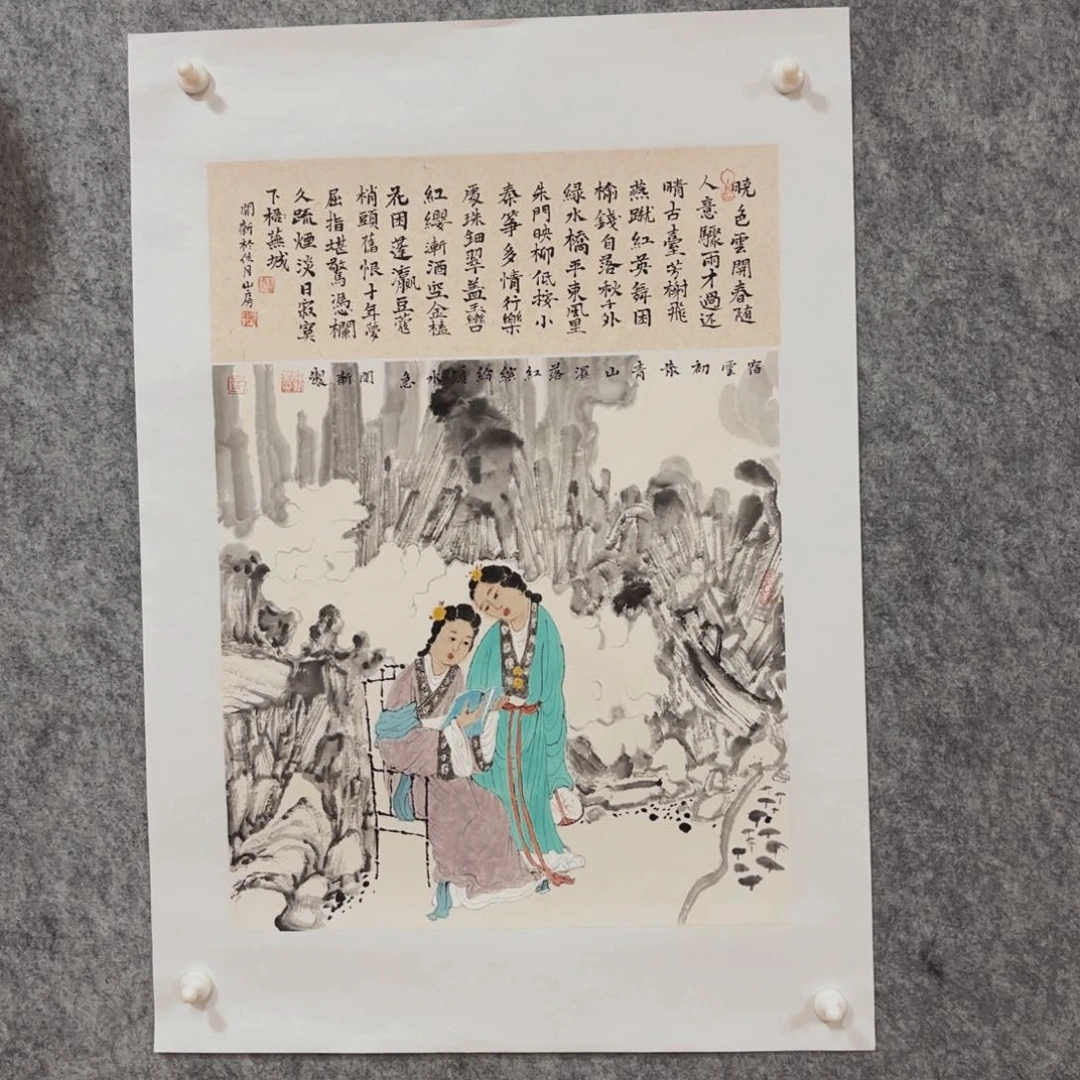 曉色雲開春随
人意驟雨才過还
晴古臺芳榭飛
燕蹴紅英舞困
榆錢自落秋千外
綠水橋平東風里
朱門映柳低按小
秦箏多情行樂
處珠鈿翠蓋玉轡
紅纓漸酒空金榼
花困蓬瀛豆蔻
梢頭舊恨十年夢
屈指堪驚憑欄
久疏煙淡日寂寞
下蕪城
開新於住月山房
宿雲初散青山濕落紅繽紛溪水急 開新製